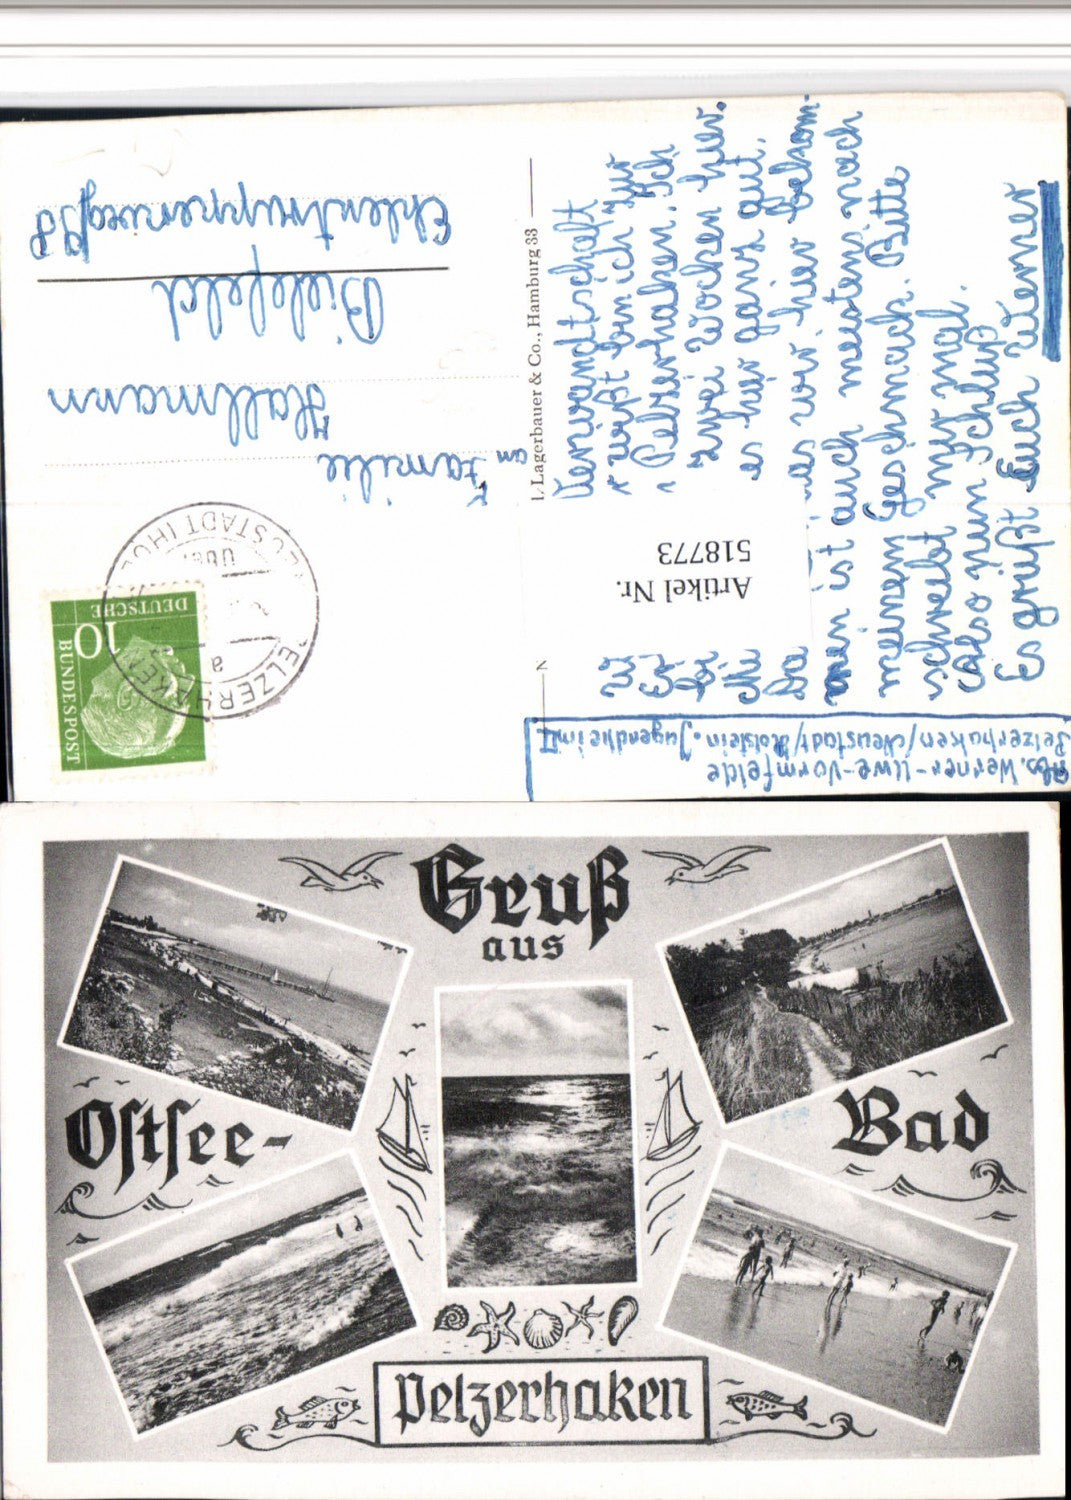 Abs. Werner-Uwe-Vormfelde
Pelzerhaken/Neustadt/Holstein. Jugendheim II
Verwandtschaft
bin ich zur
in Pelzerhaken. Ich
zwei Wochen hier.
es hier ganz gut.
was wir hier bekom-
men ist auch meistens nach
meinem Geschmack. Bitte
schreibt mir mal.
Also nun Schluß
Es grüßt Euch Werner
an Familie
Hallmann
Bielefeld
Ehlentruppenweg 38
l. Lagerbauer & Co., Hamburg 33
Artikel Nr.
518773
DEUTSCHE
BUNDESPOST
10
PELZERHAKEN
a
über
NEUSTADT (HOL
Gruß
aus
Ostsee-
Bad
Pelzerhaken